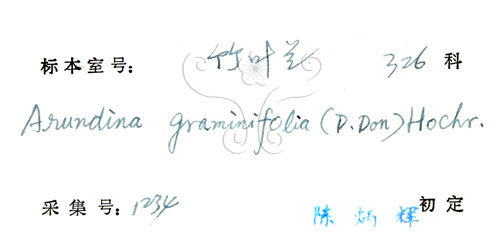 标本室号: 竹叶兰 326 科
Arundina graminifolia (D.Don) Hochr.
采集号: 1234 陈炳辉 初定